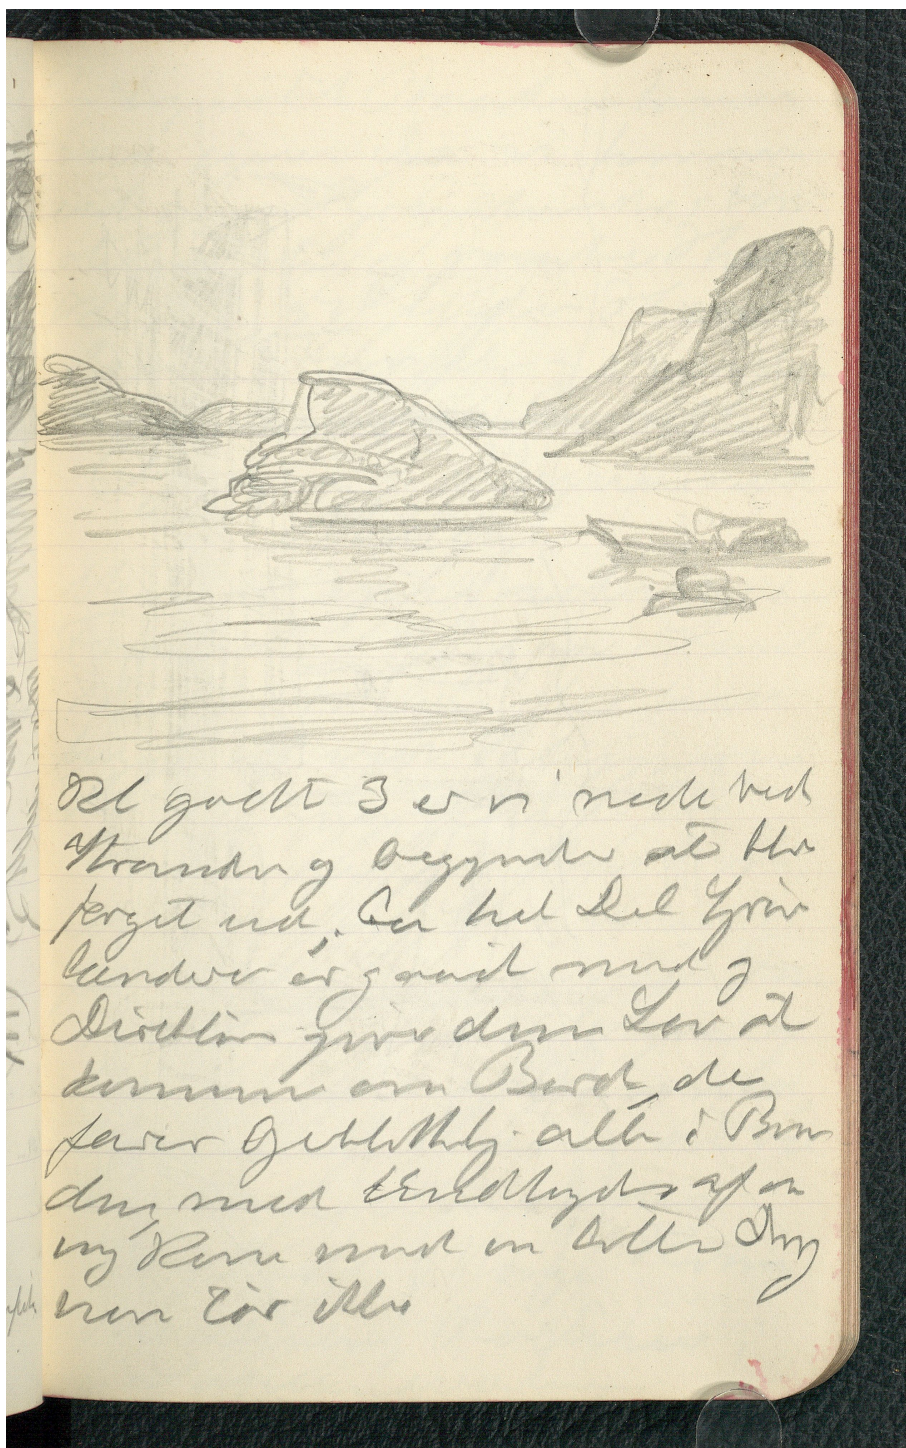 Kl godt 3 er vi nede ved
Stranden og begynder at blive
færget ud, en hel Del Grøn
lændere er gaaet med og
Direktøren giver dem Lov at
komme om Bord, de
farer øjeblikkelig alle i Baa
den, med Undtagelse af en
ung Kone med en lille Dreng
hun tør ikke